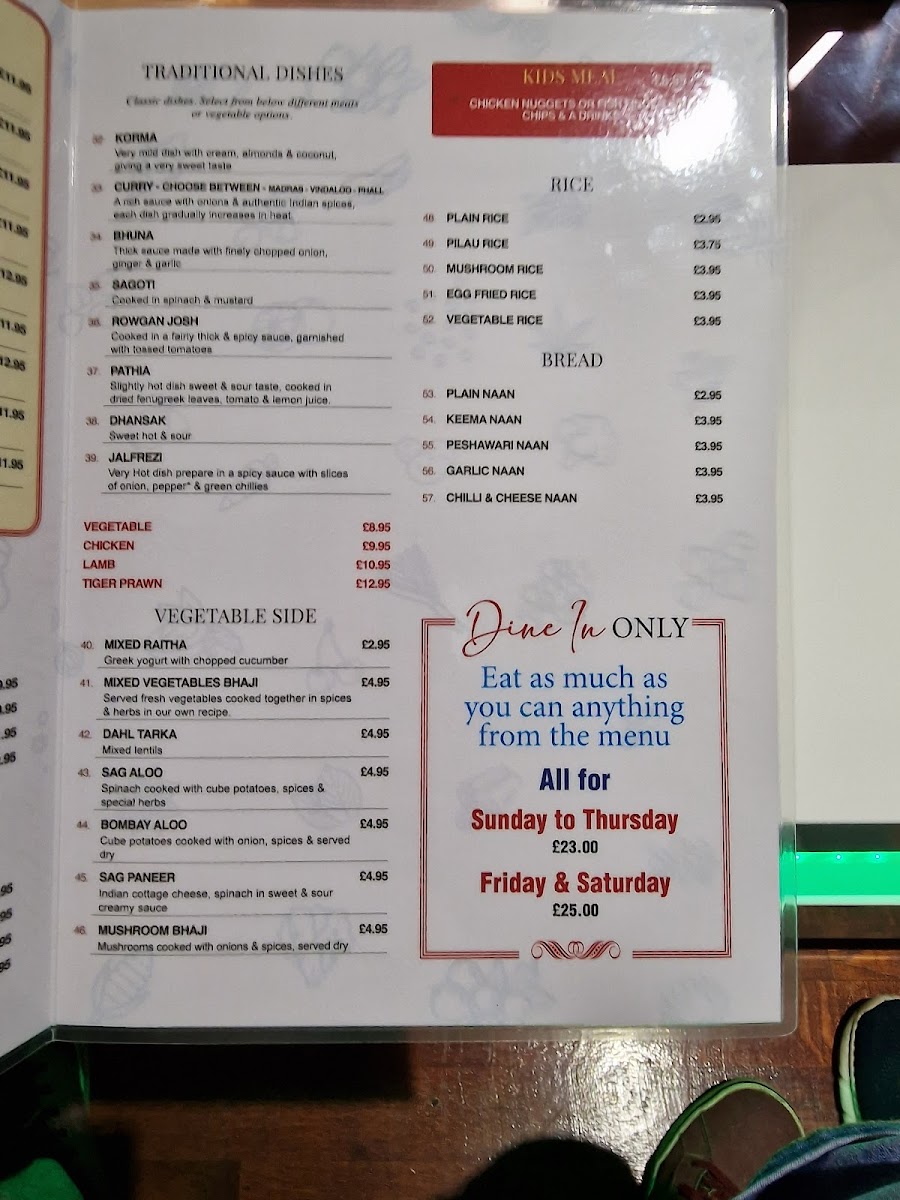 TRADITIONAL DISHES
Classic dishes. Select from below different meats
or vegetable options.
32. KORMA
Very mild dish with cream, almonds & coconut,
giving a very sweet taste
33. CURRY - CHOOSE BETWEEN - MADRAS - VINDALOO - PHALL
A rich sauce with onions & authentic Indian spices,
each dish gradually increases in heat.
34. BHUNA
Thick sauce made with finely chopped onion,
ginger & garlic
35. SAGOTI
Cooked in spinach & mustard
36. ROWGAN JOSH
Cooked in a fairly thick & spicy sauce, garnished
with tossed tomatoes
37. PATHIA
Slightly hot dish sweet & sour taste, cooked in
dried fenugreek leaves, tomato & lemon juice.
38. DHANSAK
Sweet hot & sour
39. JALFREZI
Very Hot dish prepare in a spicy sauce with slices
of onion, pepper* & green chillies
VEGETABLE £8.95
CHICKEN £9.95
LAMB £10.95
TIGER PRAWN £12.95
VEGETABLE SIDE
40. MIXED RAITHA £2.95
Greek yogurt with chopped cucumber
41. MIXED VEGETABLES BHAJI £4.95
Served fresh vegetables cooked together in spices
& herbs in our own recipe.
42. DAHL TARKA £4.95
Mixed lentils
43. SAG ALOO £4.95
Spinach cooked with cube potatoes, spices &
special herbs
44. BOMBAY ALOO £4.95
Cube potatoes cooked with onion, spices & served
dry
45. SAG PANEER £4.95
Indian cottage cheese, spinach in sweet & sour
creamy sauce
46. MUSHROOM BHAJI £4.95
Mushrooms cooked with onions & spices, served dry
KIDS MEAL
CHICKEN NUGGETS OR
CHIPS & A DRINK
RICE
48. PLAIN RICE £2.95
49. PILAU RICE £3.75
50. MUSHROOM RICE £3.95
51. EGG FRIED RICE £3.95
52. VEGETABLE RICE £3.95
BREAD
53. PLAIN NAAN £2.95
54. KEEMA NAAN £3.95
55. PESHAWARI NAAN £3.95
56. GARLIC NAAN £3.95
57. CHILLI & CHEESE NAAN £3.95
Dine In ONLY
Eat as much as
you can anything
from the menu
All for
Sunday to Thursday
£23.00
Friday & Saturday
£25.00